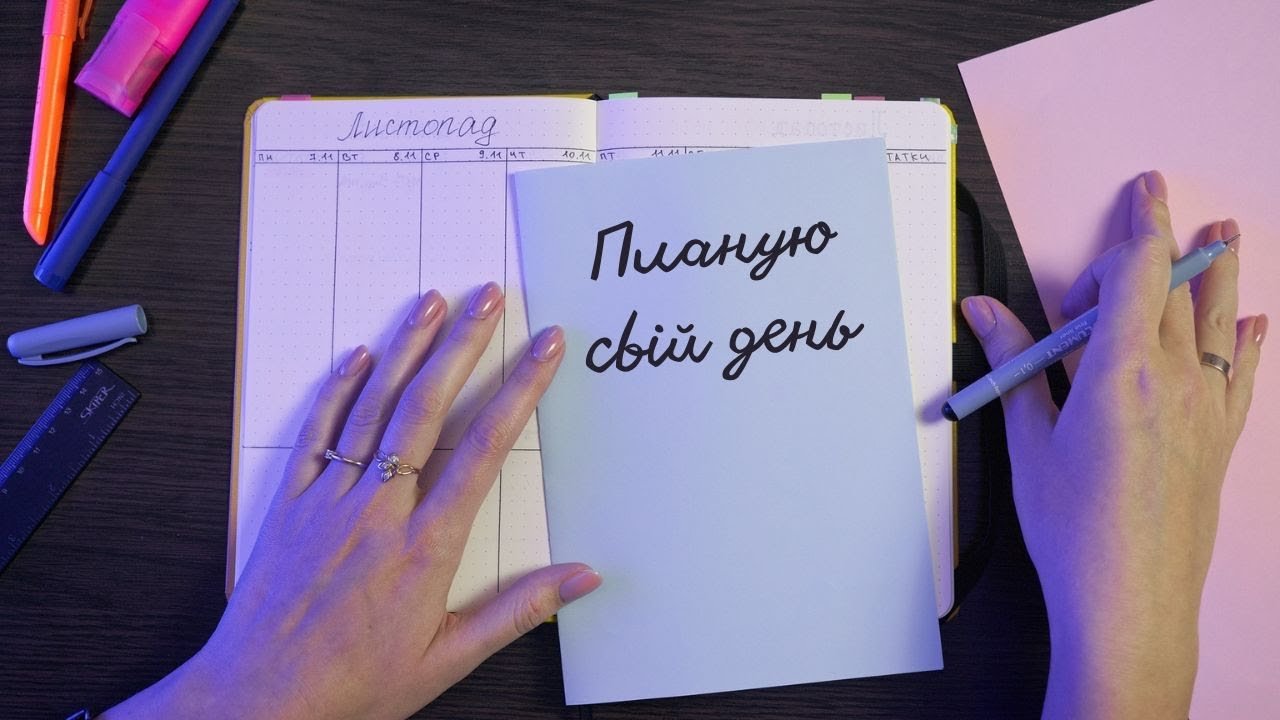 Листопад
ПН 7.11 ВТ 8.11 СР 9.11 ЧТ 10.11 ПТ 11.11
ТАТКИ
Планую
свій день
SKIPER
DOCUMENT 0,1
Fine line